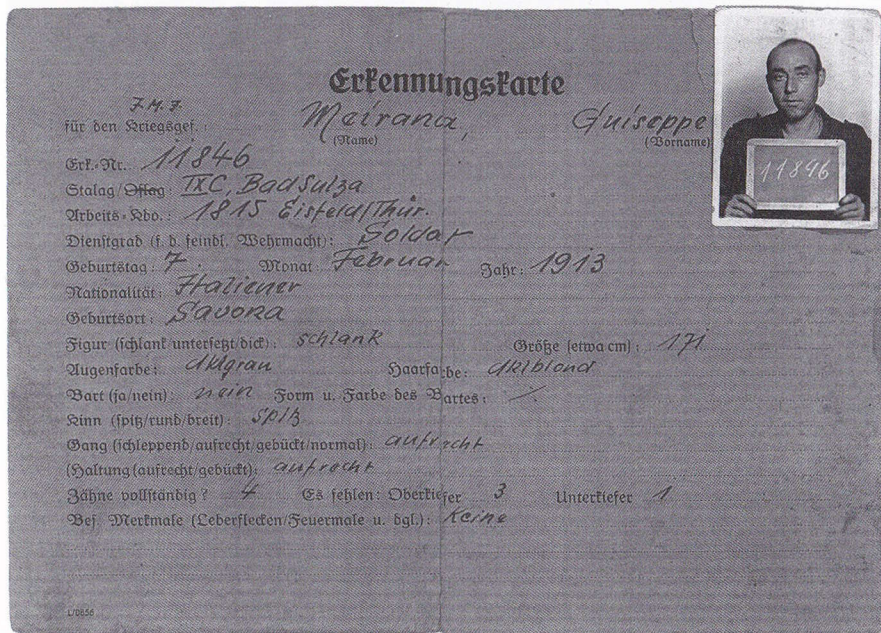 Erkennungskarte
I.M.I.
für den Kriegsgef.: Meirana, Guiseppe
(Name) (Vorname)
Erk.-Nr. 11846
Stalag/Oflag: IX C, Bad Sulza
Arbeits-Kdo.: 1815 Eisfeld/Thür.
Dienstgrad (f. d. feindl. Wehrmacht): Soldat
Geburtstag: 7. Monat: Februar Jahr: 1913
Nationalität: Italiener
Geburtsort: Savona
Figur (schlank/untersetzt/dick): schlank Größe (etwa cm): 171
Augenfarbe: dklgrau Haarfarbe: dklblond
Bart (ja/nein): nein Form u. Farbe des Bartes: /.
Kinn (spitz/rund/breit): spitz
Gang (schleppend/aufrecht/gebückt/normal): aufrecht
(Haltung (aufrecht/gebückt): aufrecht
Zähne vollständig? 4 Es fehlen: Oberkiefer 3 Unterkiefer 1
Bes. Merkmale (Leberflecken/Feuermale u. dgl.): Keine
L/0856
11846